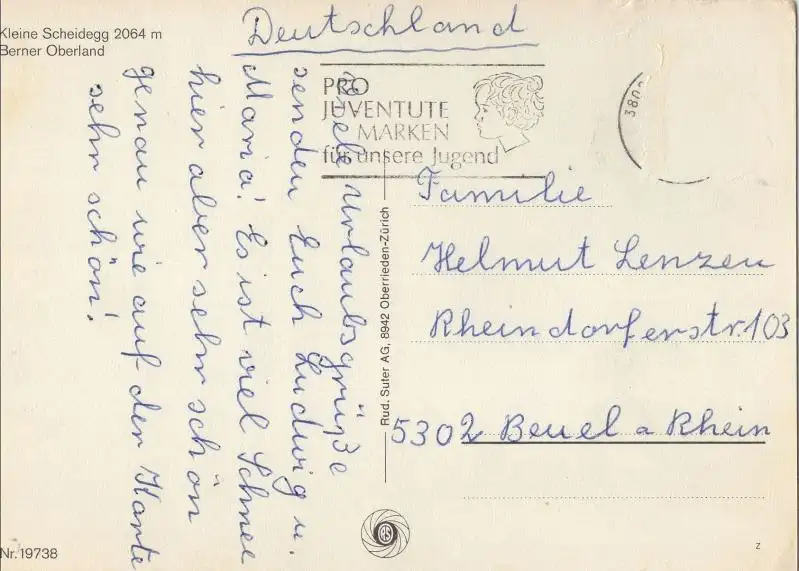 Kleine Scheidegg 2064 m
Berner Oberland
Deutschland
PRO
JUVENTUTE
MARKEN
für unsere Jugend
380
Viele Urlaubsgrüße
senden Euch Ludwig u.
Maria! Es ist viel Schnee
hier aber sehr schön
genau wie auf der Karte
sehr schön!
Familie
Helmut Lenzen
Rheindorferstr. 103
5302 Beuel a Rhein
Rud. Suter AG, 8942 Oberrieden-Zürich
RS
Nr. 19738
z